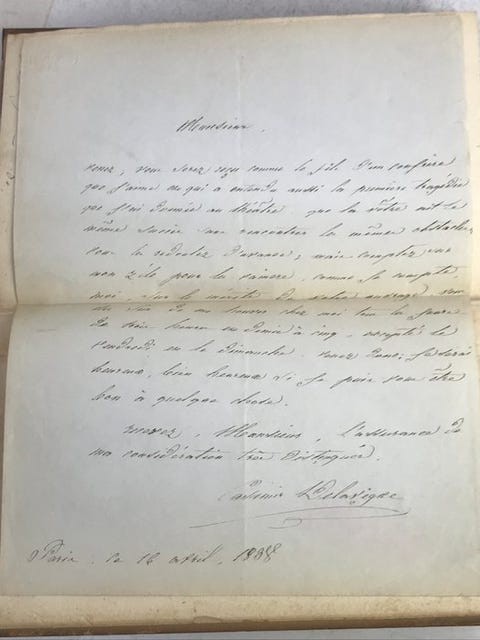 Monsieur,
venez, vous serez reçu comme le fils d'un confrère
que j'aime et qui a entendu aussi la première tragédie
que j'ai donnée au théâtre. que la vôtre ait le
même succès sans rencontrer les mêmes obstacles
vous les redoutez d'avance; mais comptez sur
mon zèle pour les vaincre, comme je compte
moi, sur le mérite de votre ouvrage. vous
de me trouver chez moi tous les jours
heures en demie à cinq, excepté le
vendredi ou le dimanche. venez donc; je serai
heureux, bien heureux si je puis vous être
bon à quelque chose.
recevez, Monsieur, l'assurance de
ma considération très distinguée.
Casimir Delavigne
Paris, le 16 avril, 1838